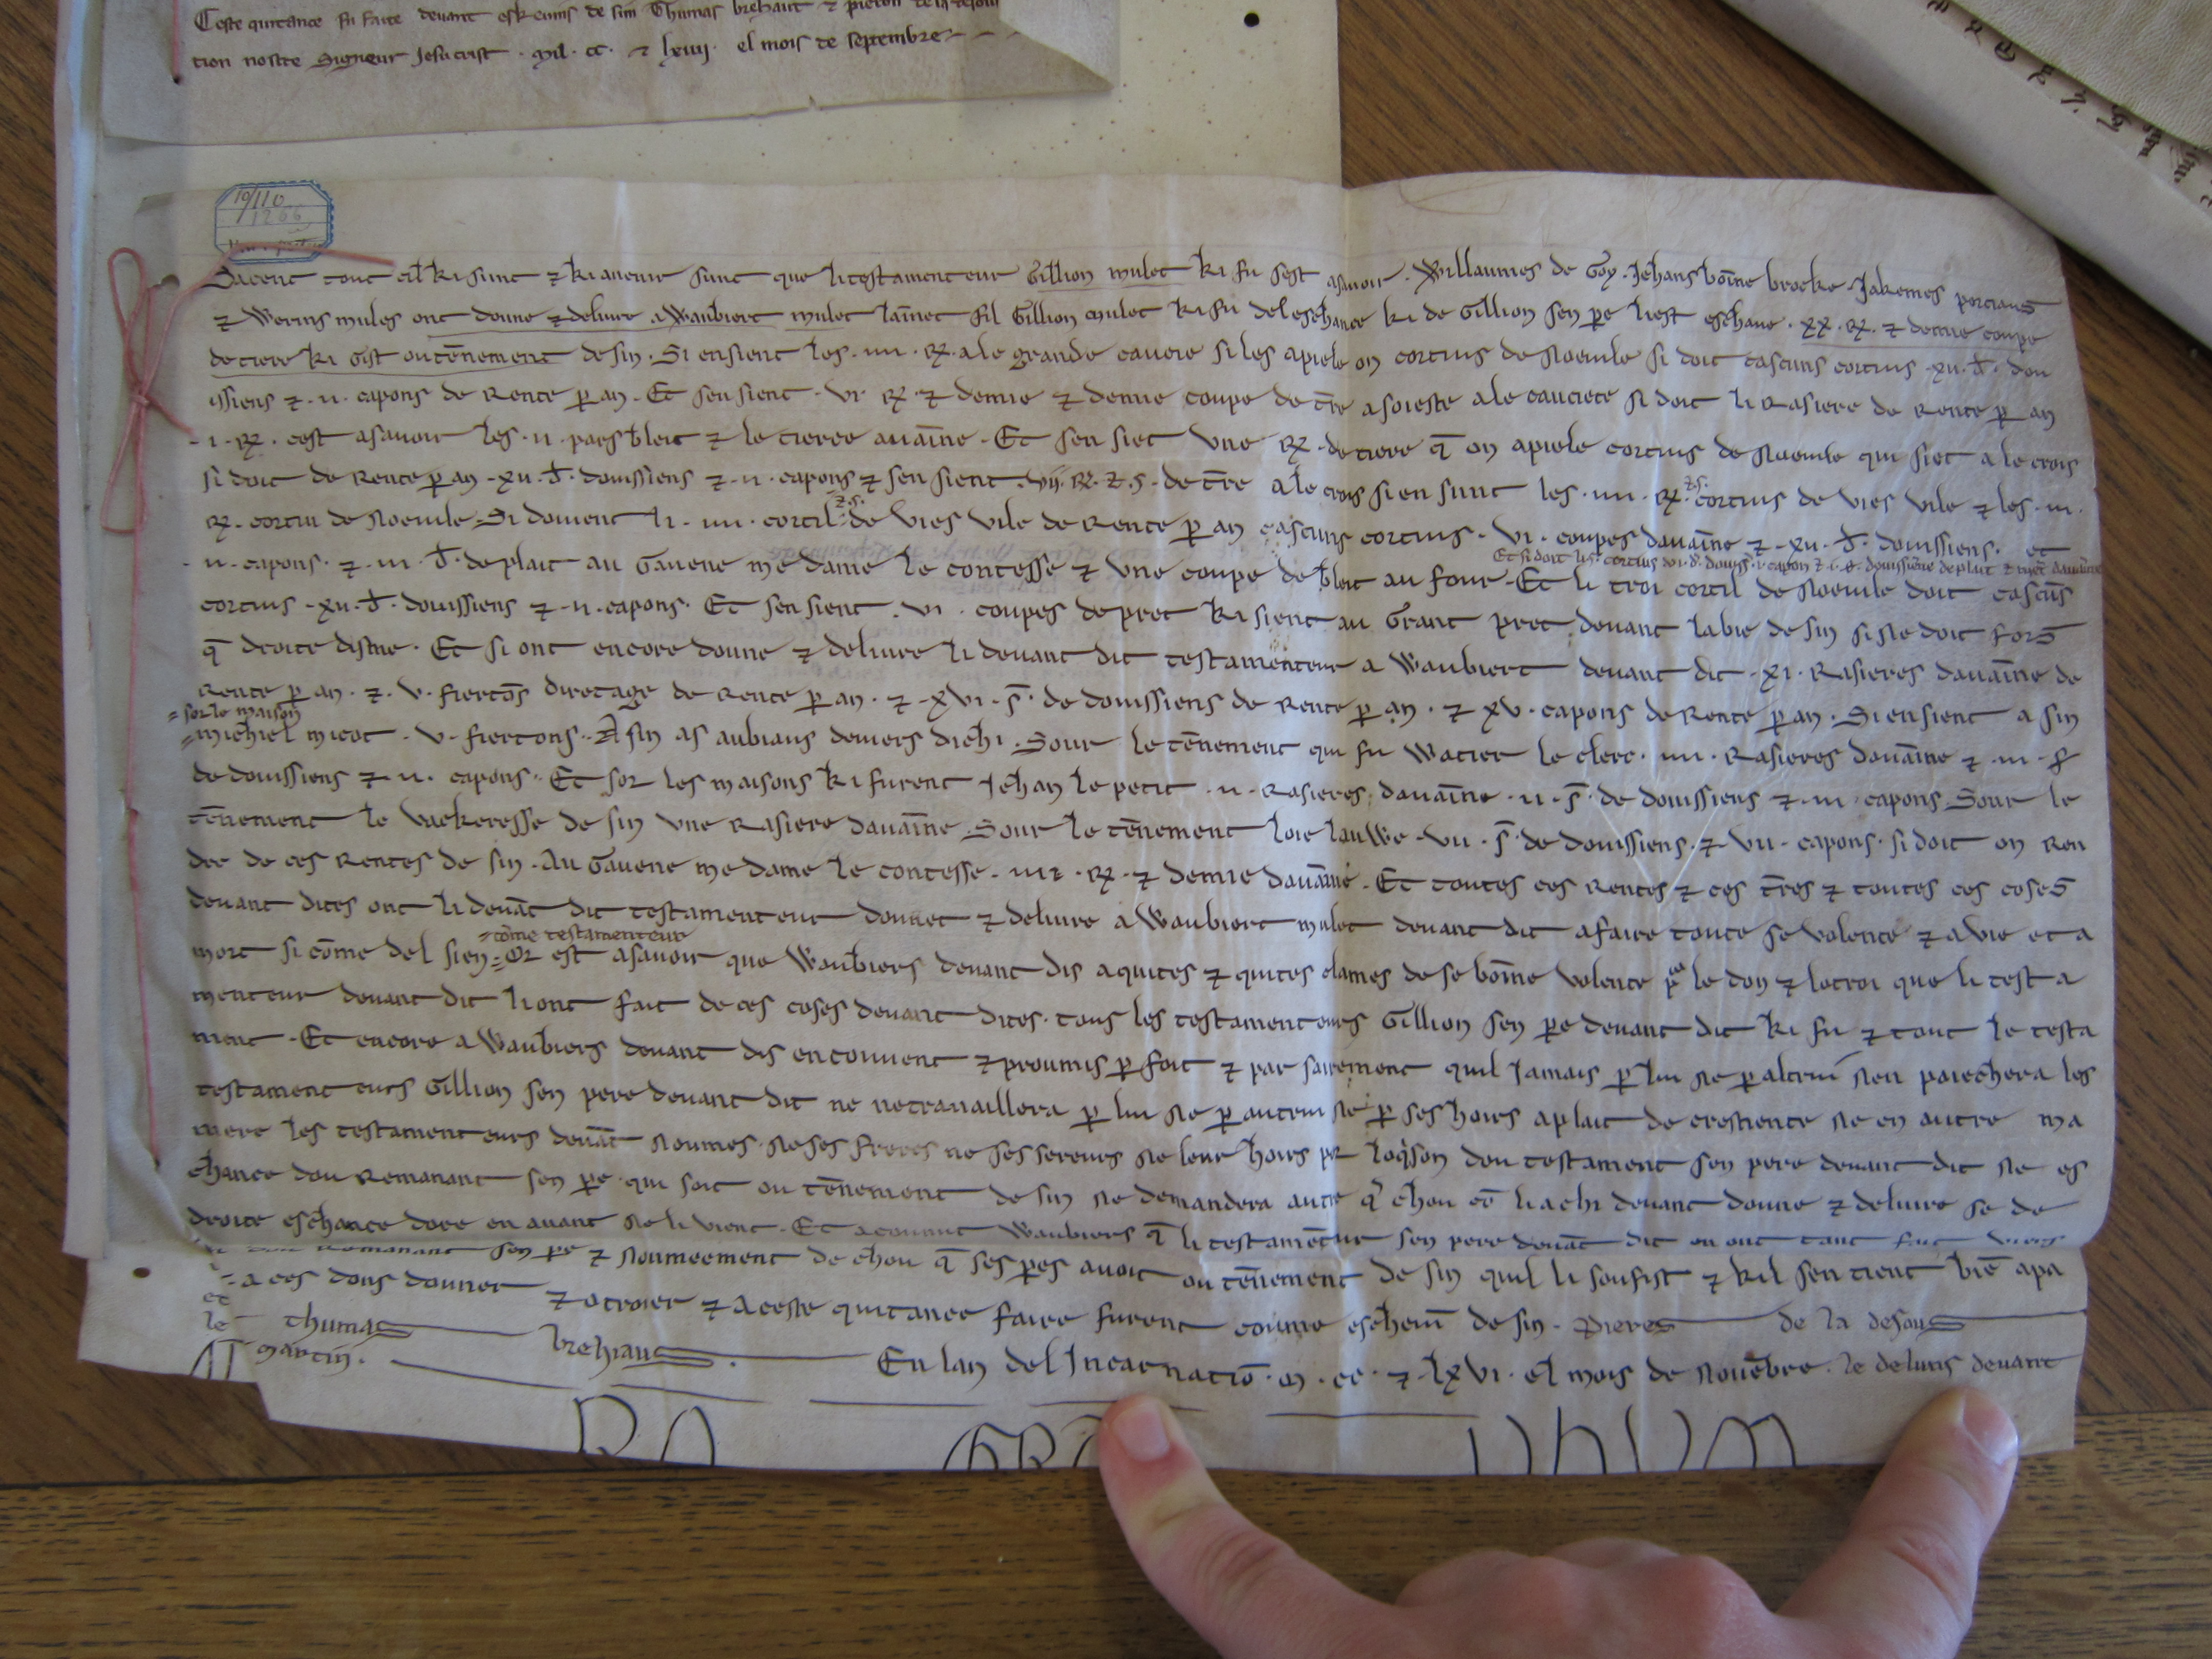 Ceste quitance fu faite deuant eskeuins de sin Thumas brehaut ⁊ pieron de la desous
tion nostre Signeur Jesucrist · mil · cc · ⁊ lxiiij · el mois de septembre
19/110
1266
Sacent tout cil ki sunt ⁊ ki auenir sunt que li testamenteur Gillion mulet ki fu sest asauoir · Willaumes de Goy · Jehans boīne broke · Jakemes porciaus
⁊ Werins mules ont donne ⁊ deliure a Waubiert mulet lainet fil Gillion mulet ki fu del eschance ki de Gillion sen pe li est eschaue · xx · R · ⁊ demie coupe
de tiere ki gist ou tēnement de sin · Si en sient les · iiii · R · a le grande cauere si les apiele on cortius de noeuile si doit cascuns cortius · xii · d · dou
issiens ⁊ · ii · capons de Rente p an · Et sen sient · vi · R · ⁊ demie ⁊ demie coupe de tre a soieste a le cauciete si doit li Rasiere de Rente p an
· i · R · cest asauoir les · ii · pars bleit ⁊ le tierce auaine · Et sen siet vne R · de tiere q̄ on apiele cortius de noeuile qui siet a le crois
si doit de Rente p an · xii · d · douissiens ⁊ · ii · capons ⁊ sen sient · vii · R · ⁊ · s · de tre a le crois si en sunt les · iiii · R · ⁊ s · cortius de vies vile ⁊ les · iii ·
R · cortiu de noeuile · Si doiuent li · iiii · cortil ⁊ s · de vies vile de Rente p an cascuns cortius · vi · coupes dauaīne ⁊ · xii · d · douissiens · et
· ii · capons · ⁊ · iii · d · de plait au Gauene me dame le contesse ⁊ vne coupe de bleit au four · Et li troi cortil de noeuile doit cascūs
Et si doit li s · cortius vi · d · douiss · i · capon ⁊ i · d · douissiens de plait ⁊
cortius · xii · d · douissiens ⁊ · ii · capons · Et sen sient · vi · coupes de pret ki sient au Grant pret deuant labie de sin si ne doit fors
q̄ droite disme · Et si ont encore donne ⁊ deliure li deuant dit testamenteur a Waubiert deuant dit · xi · Rasieres dauaīne de
Rente p an · ⁊ · v · fiertōs diretage de Rente p an · ⁊ · xvi · s · de douissiens de Rente p an · ⁊ xv · capons de Rente p an · Si en sient a sin
sor le maison
michiel micot · v · fiertons · A sin as aubiaus deuers diehi · Sour le tēnement qui fu Watier le clerc · iiii · Rasieres dauaīne ⁊ · iii · s
de douissiens ⁊ · ii · capons · Et sor les maisons ki furent Jehan le petit · ii · Rasieres dauaīne · ii · s · de douissiens ⁊ · iii · capons · Sour le
tēnement le vackeresse de sin vne Rasiere dauaīne · Sour le tēnement loie lauwe · vii · s · de douissiens · ⁊ vii · capons · si doit on Ren
dre de ces Rentes de sin · Au Gauene me dame le contesse · iiii · R · ⁊ demie dauaīne · Et toutes ces Rentes ⁊ ces tres ⁊ toutes ces coses
deuant dites ont li deuāt dit testamenteur donnet ⁊ deliure a Waubiert mulet deuant dit a faire toute se volente ⁊ a vie et a
cōme testamenteur
mort si cōme del sien · Or est asauoir que Waubiers deuant dis a quites ⁊ quites clames de se boīne volente p le don ⁊ lotroi que li testa
menteur deuant dit li ont fait de ces coses deuant dites · tous les testamenteurs Gillion sen pe deuant dit ki fu ⁊ tout le testa
ment · Et encore a Waubiers deuant dis en couuent ⁊ proumis p foit ⁊ par sairement quil jamais p lui ne p altrui nen paechera les
testamenteurs Gillion sen pere deuant dit ne ne trauaillera p lui ne p autrui ne p ses hoirs a plait de crestiente ne en autre ma
niere les testamenteurs deuāt noumes · ne ses freres ne ses sereurs ne leur hoirs por loqison dou testament sen pere deuant dit ne es
chance dou Remanant sen pe qui soit ou tēnement de sin ne demandera autre q chou li a chi deuant donne ⁊ deliure se de
droite eschance dore en auant ne li vient · Et a couuut Waubiers q̄ li testamēteur sen pere deuāt dit en ont tant fait
Remanant sen pe ⁊ noumeement de chou q̄ ses peres auoit ou tēnement de sin quil li soufist ⁊ kil sen tient biē apa
a ces dons donner ⁊ otroier ⁊ a ceste quitance faire furent coume escheuī de sin · Pieres de la desous
et thumas brehiaus · En lan del Incarnatiō · m · cc · ⁊ · lxvi · el mois de nouēbre · le deluns deuant
le martin ·